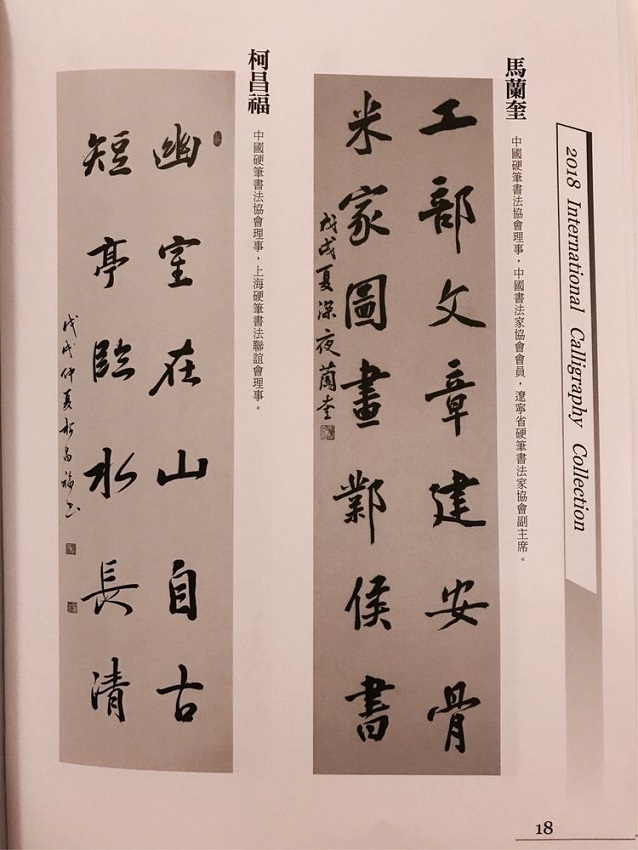 2018 International Calligraphy Collection
馬蘭奎
中國硬筆書法協會理事，中國書法家協會會員，遼寧省硬筆書法家協會副主席。
工部文章建安骨
米家圖畫鄴侯書
戊戌夏深夜蘭奎
柯昌福
中國硬筆書法協會理事，上海硬筆書法聯誼會理事。
幽室在山自古
短亭臨水長清
戊戌仲夏柯昌福書
18